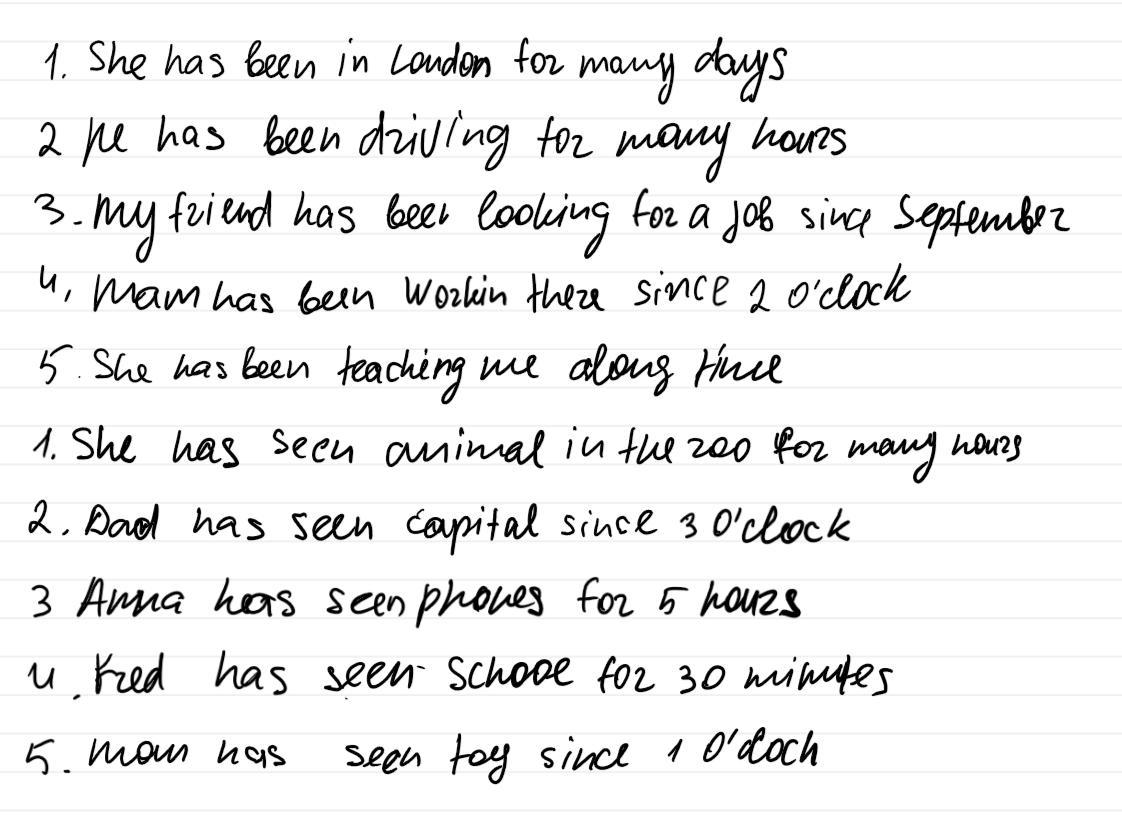 1. She has been in London for many days
2 He has been driving for many hours
3. My friend has been looking for a job since September
4, Mam has been workin there since 2 o'clock
5. She has been teaching me along time
1. She has seen animal in the zoo for many hours
2. Dad has seen capital since 3 o'clock
3 Anna has seen phones for 5 hours
4. Fred has seen school for 30 minutes
5. Mom has seen toy since 1 o'cloch